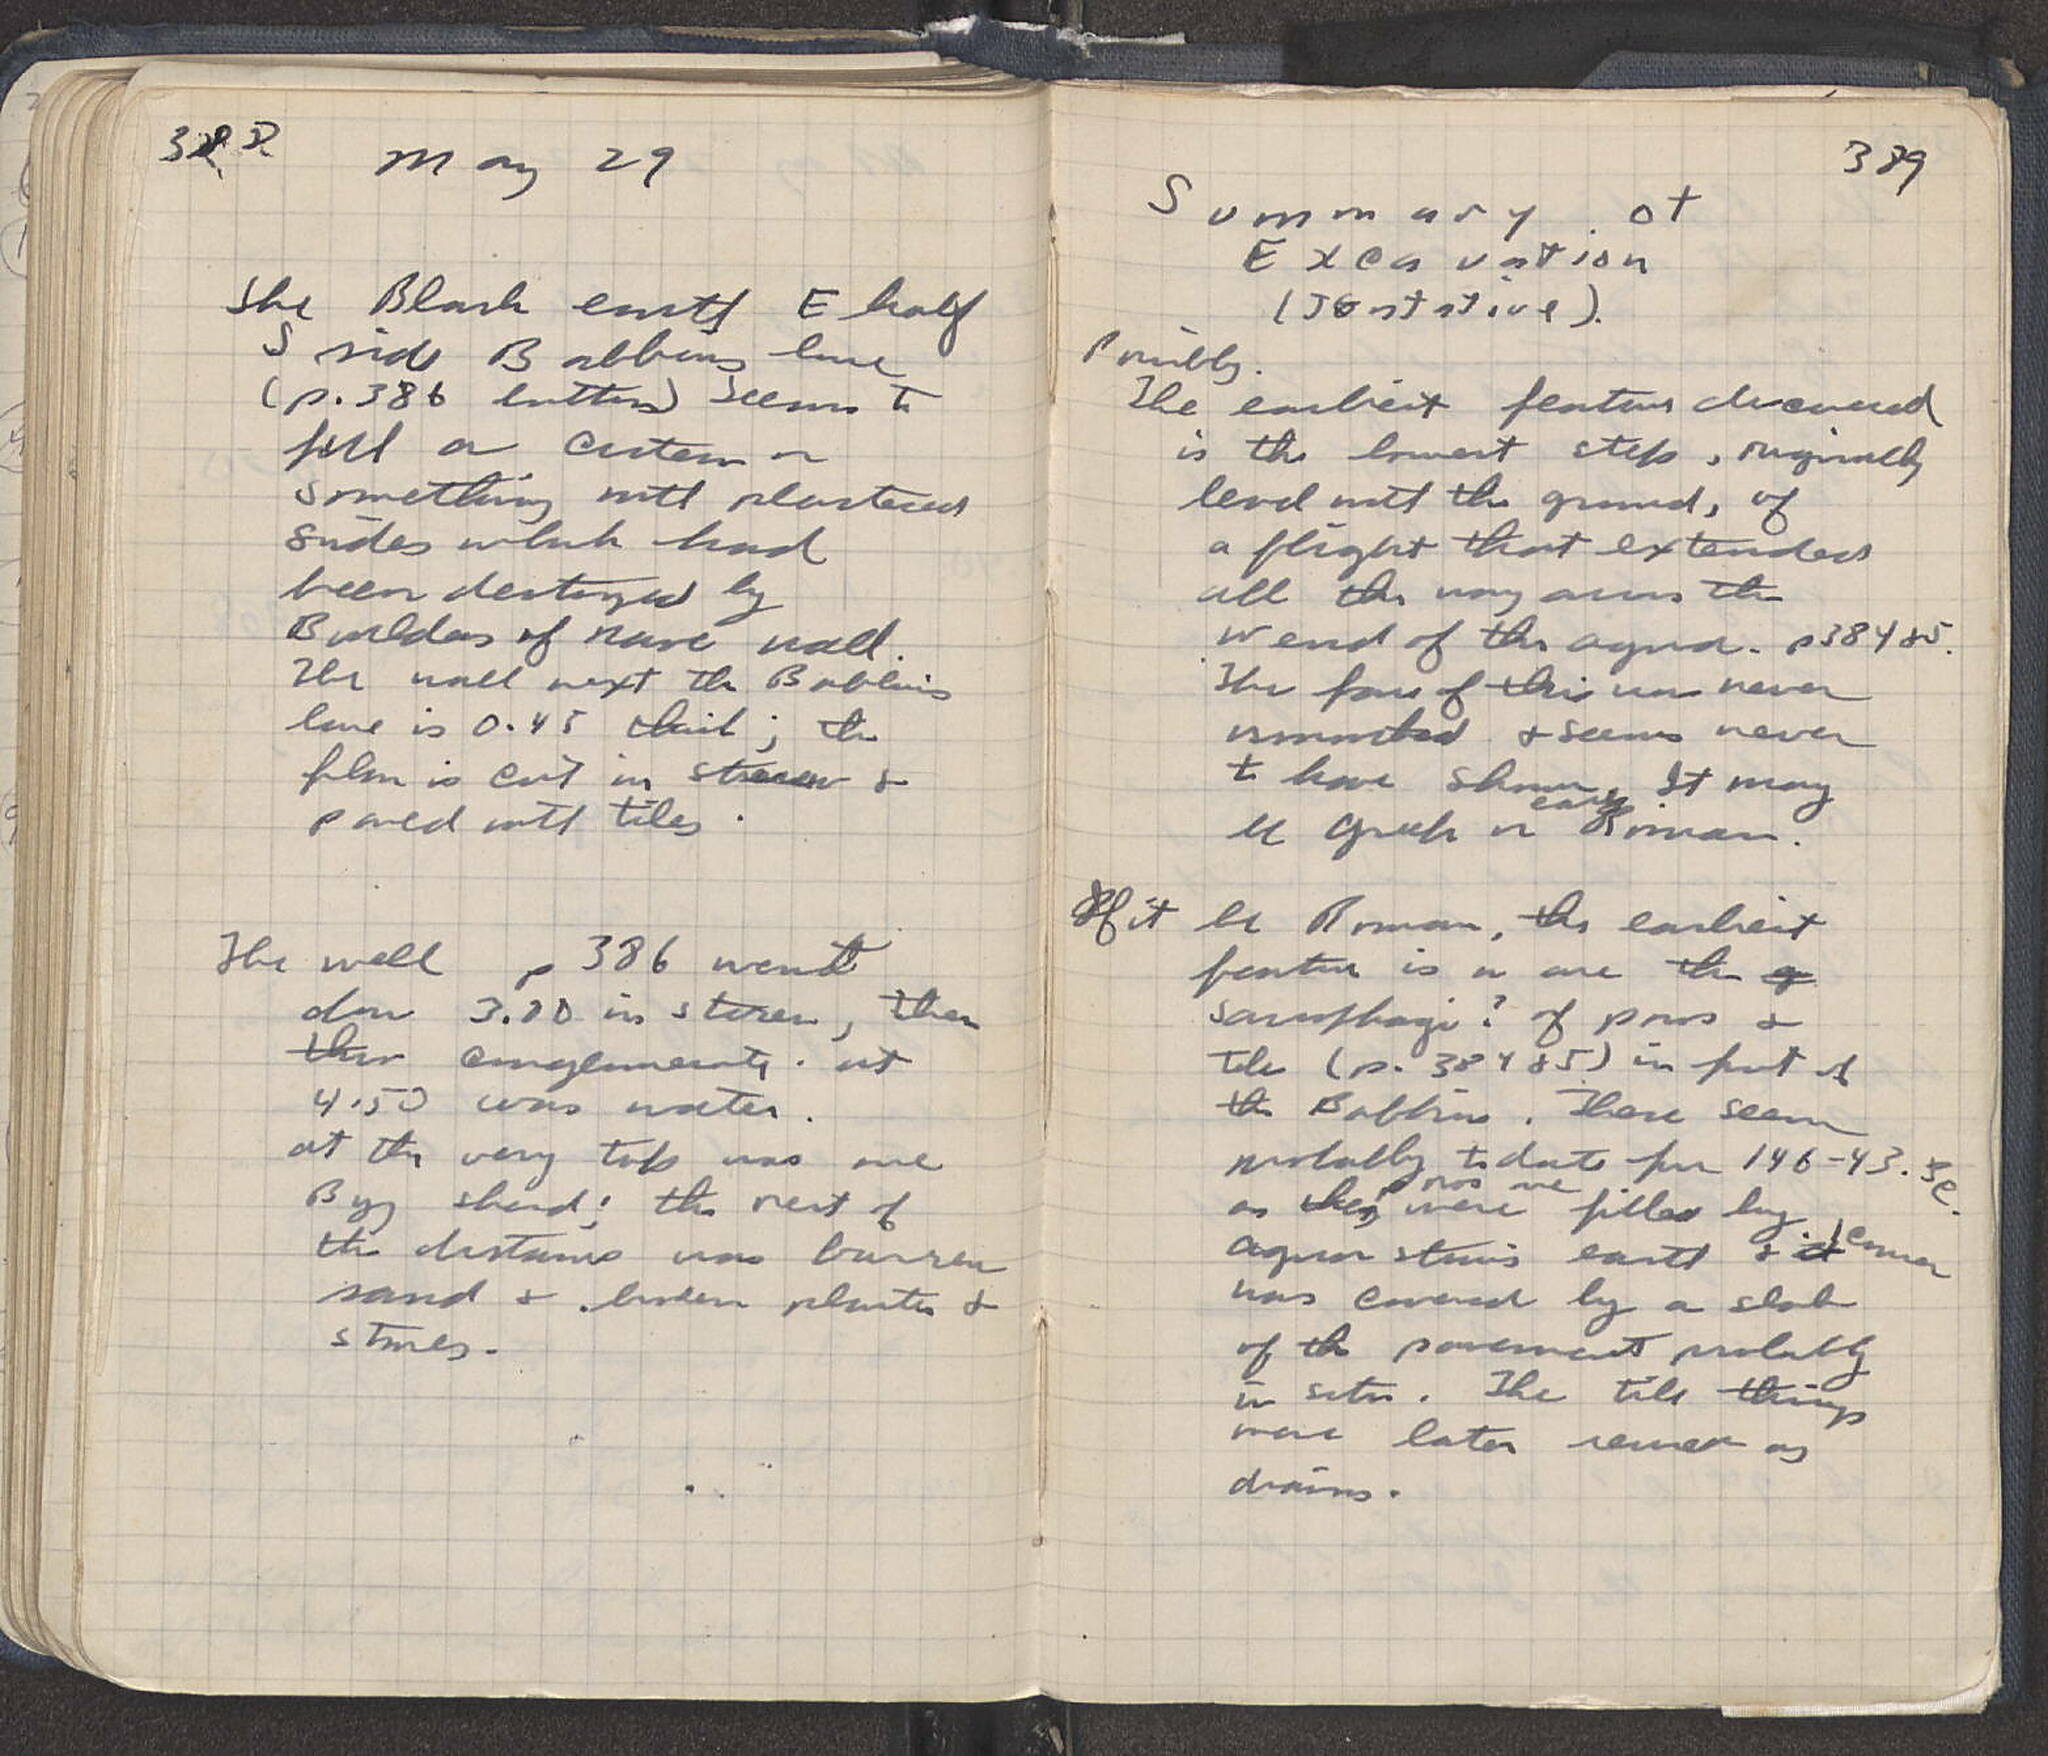 388
May 29
The Black earth E half
S side Babbius base
(p. 386 bottom) seems to
fill a cistern or
something with plastered
sides which had
been destroyed by
Builders of nave wall.
The wall next the Babbius
base is 0.45 thick; the
floor is cut in stereo &
paved with tiles.
The well p 386 went
down 3.00 in stereo, then
thru conglomerate. at
4.50 was water.
at the very top was one
Byz sherd; the rest of
the distance was barren
sand & broken plaster &
stones.
389
Summary of
Excavation
(Tentative).
Possibly.
The earliest feature discovered
is the lowest step, originally
level with the ground, of
a flight that extended
all the way across the
W end of the agora. p384 85.
The face of this was never
& seems never
to have shown. It may
be Greek or early Roman.
If it be Roman, the earliest
feature is or are the
sarcophagi? of poros &
tile (p. 384 85) in front of
the Babbius. These seem
probably to date from 146-43. BC.
as they poros one were filled by
agora strosis earth & it corner
was covered by a slab
of the pavement probably
in situ. The tile things
were later reused as
drains.